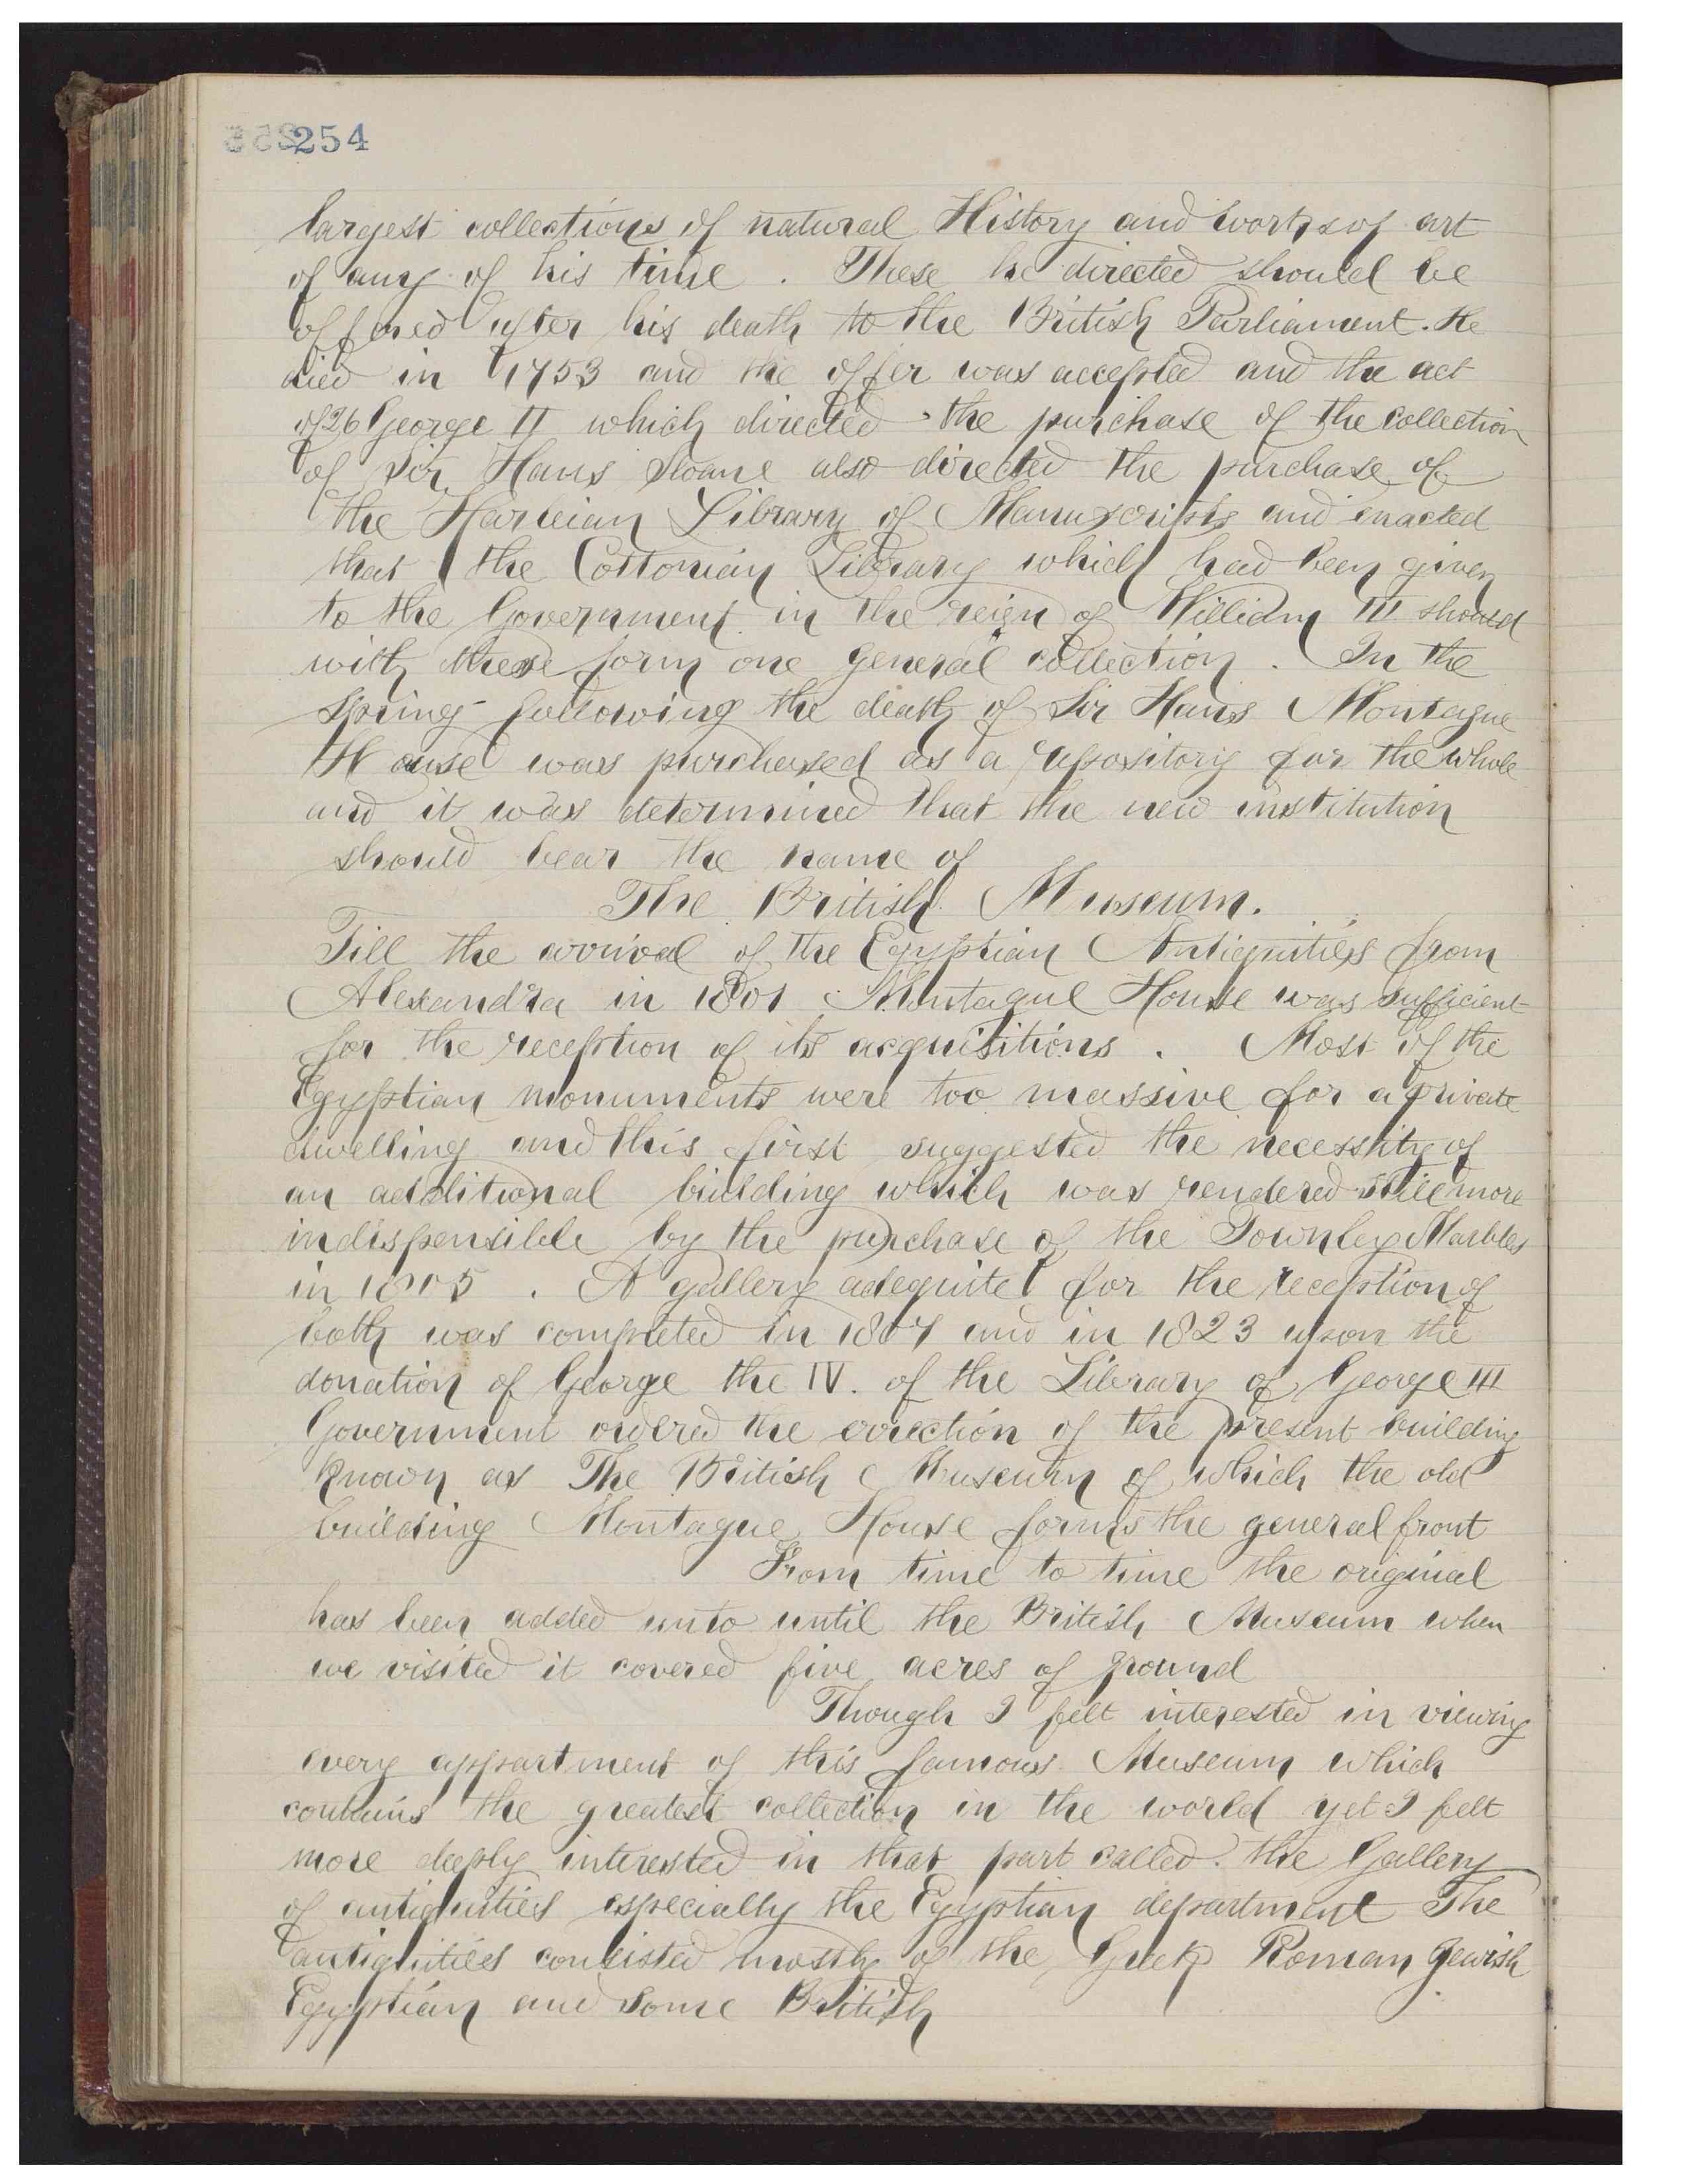 254
largest collections of natural History and works of art
of any of his time . These he directed should be
offered after his death to the British Parliament. He
died in 1753 and the offer was accepted and the act
of 26 George II which directed the purchase of the collection
of Sir Hans Sloane also directed the purchase of
the Harleian Library of Manuscripts and enacted
that the Cottonian Library which had been given
to the Government in the reign of William III should
with these form one general collection . In the
Spring following the death of Sir Hans Montague
House was purchased as a repository for the whole
and it was determined that the new institution
should bear the name of
The British Museum.
Till the arrival of the Egyptian Antiquities from
Alexandra in 1801 Montague House was sufficient
for the reception of its acquisitions . Most of the
Egyptian monuments were too massive for a private
dwelling and this first suggested the necessity of
an additional building which was rendered still more
indispensible by the purchase of the Townley Marbles
in 1805 . A gallery adequite for the reception of
both was completed in 1807 and in 1823 upon the
donation of George the IV. of the Library of George III
Government ordered the erection of the present building
known as The British Museum of which the old
building Montague House forms the general front
From time to time the original
has been added unto until the British Museum when
we visited it covered five acres of ground
Though I felt interested in viewing
every appartment of this famous Museum which
contains the greatest collection in the world yet I felt
more deeply interested in that part called the Gallery
of antiquities especially the Egyptian department The
antiquities consisted mostly of the Greek Roman Jewish
Egyptian and some British